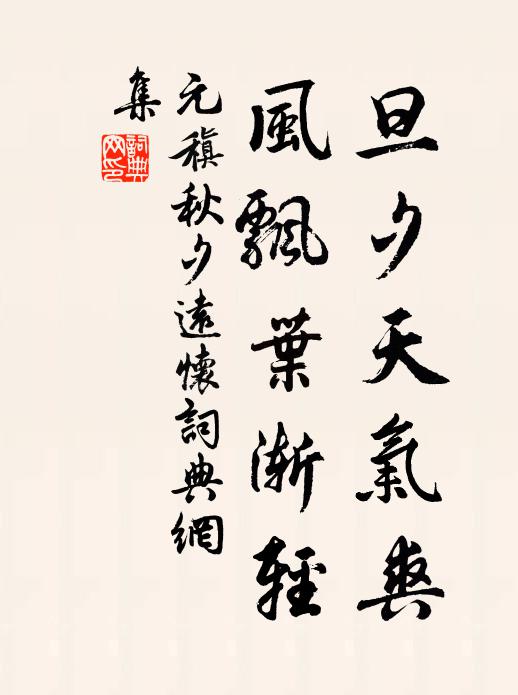 旦夕天氣爽
風飄葉漸輕
元稹秋夕遠懷詞典網
集
詞典
网印